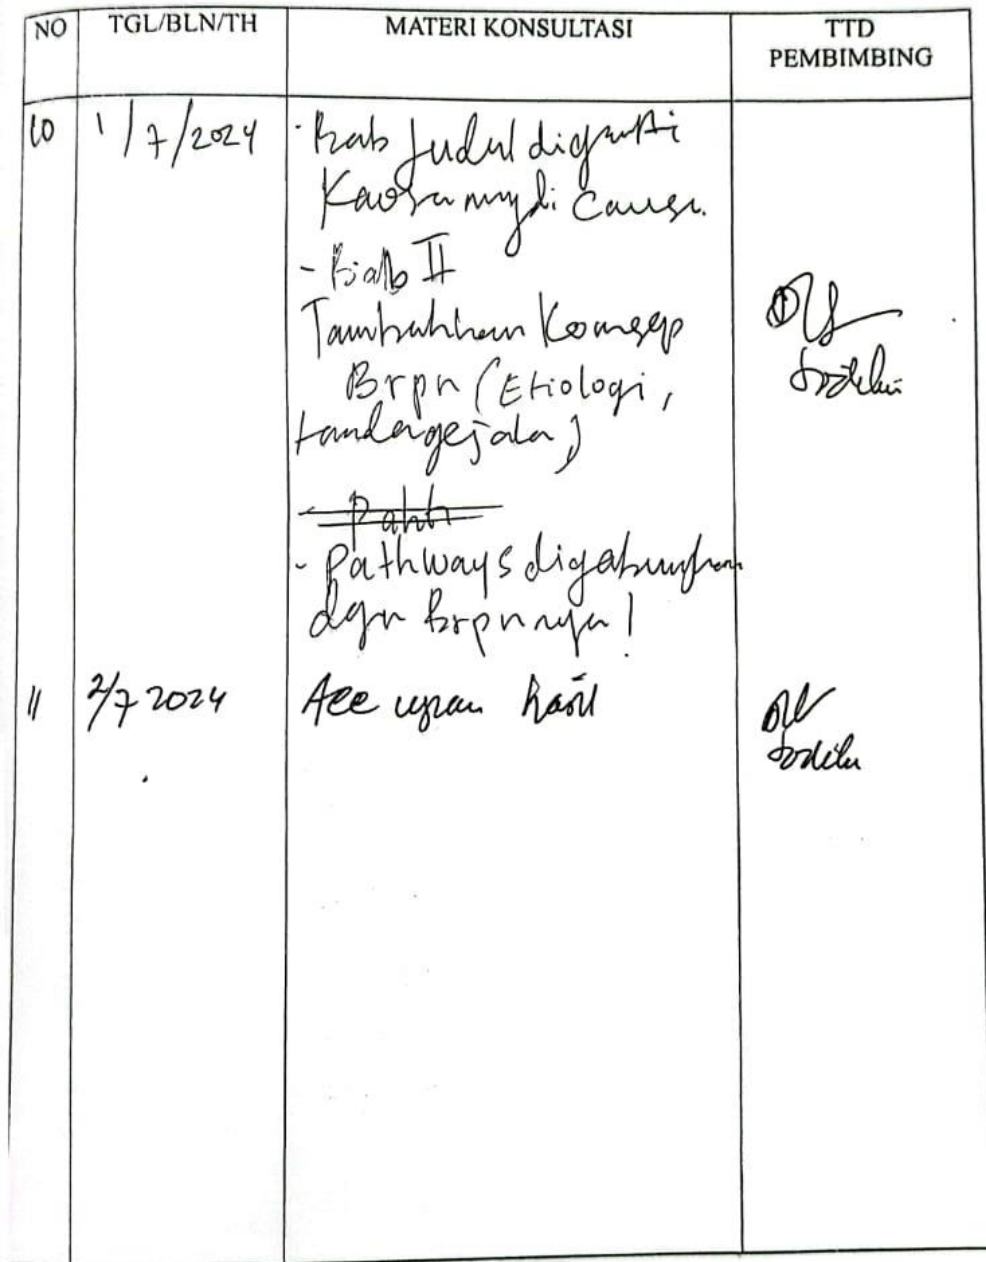 NO TGL/BLN/TH MATERI KONSULTASI TTD PEMBIMBING
10 1/7/2024 - Bab Judul diganti
Karsinoma di Causa.
- Bab II
Tambahkan Konsep
Brpn (Etiologi,
tandagejala)
- Path
- Pathways digabungkan
dgn Brpnnya!
11 2/7 2024 Acc ujian hasil